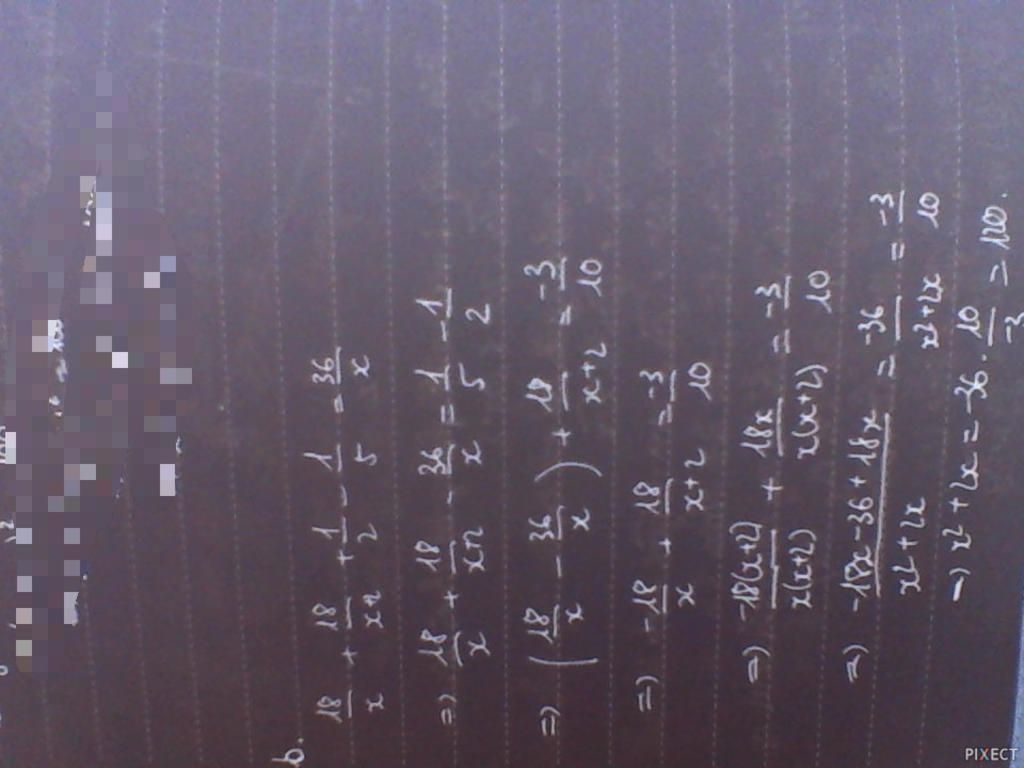 b.
18/x + 18/x+2 + 1/2 - 1/5 = 36/x
=) 18/x + 18/x+2 - 36/x = 1/5 - 1/2
=) (18/x - 36/x) + 18/x+2 = -3/10
=) -18/x + 18/x+2 = -3/10
=) -18(x+2)/x(x+2) + 18x/x(x+2) = -3/10
=) -18x-36+18x/x²+2x = -36/x²+2x = -3/10
-) x²+2x = -36. 10/-3 = 120.
PIXECT